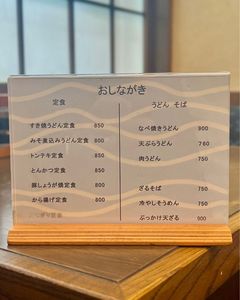 おしながき
定食
すき焼うどん定食 850
みそ煮込みうどん定食 800
トンテキ定食 850
とんかつ定食 850
豚しょうが焼定食 800
から揚げ定食 800
うどん そば
なべ焼きうどん 900
天ぷらうどん 760
肉うどん 750
ざるそば 750
冷やしそうめん 750
ぶっかけ天ざる 900